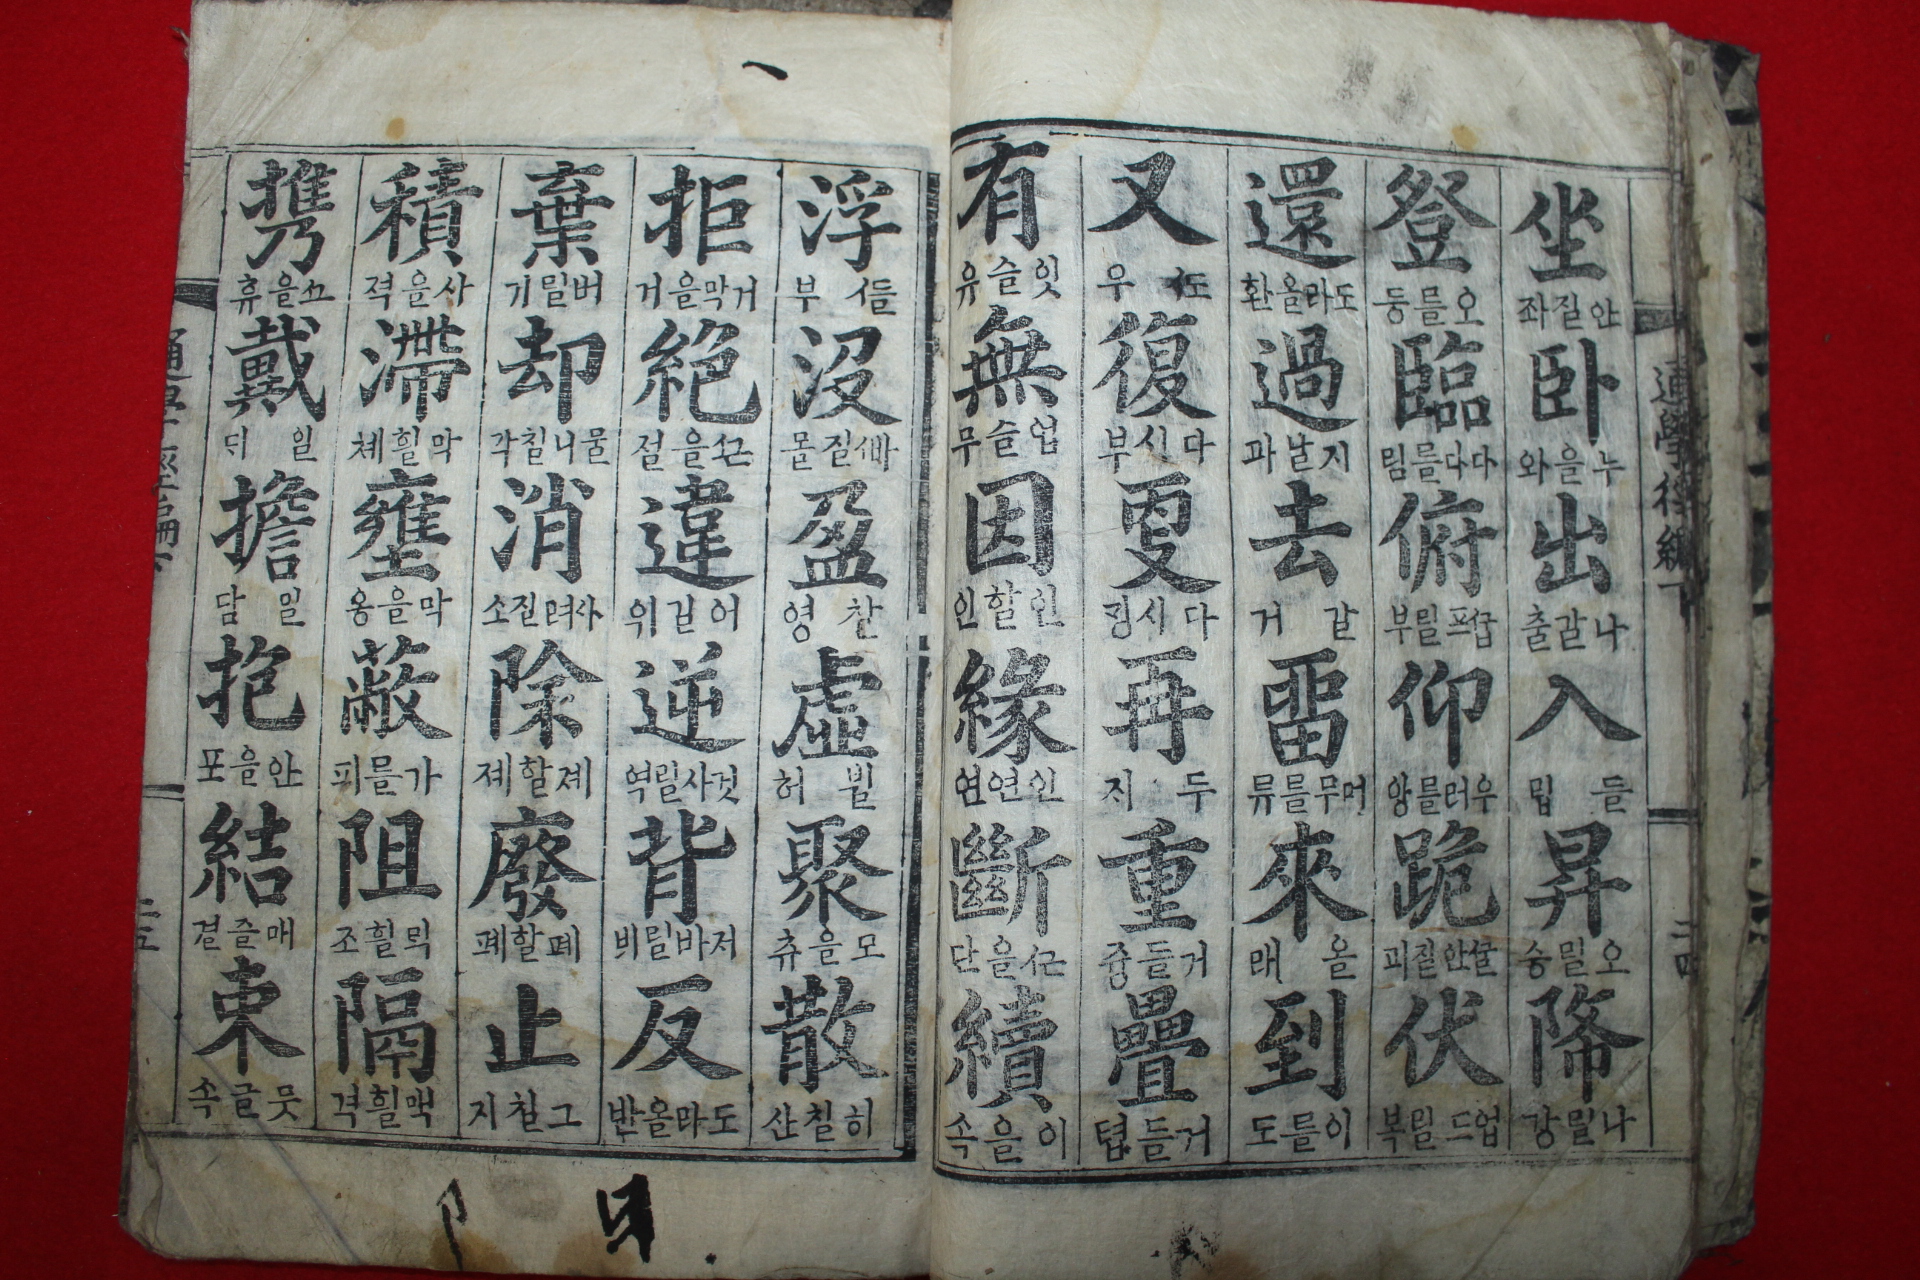 通學徑編下 二四
坐 안질좌 卧 누을와 出 나갈출 入 들입 昇 오릴승 降 나릴강
登 오를등 臨 다다를림 俯 굽프릴부 仰 우러를앙 跪 ᄭᅮᆯ안질괴 伏 업드릴복
還 도라올환 過 지날과 去 갈거 留 머무를류 來 올래 到 이를도
又 ᄯᅩ우 復 다시부 更 다시깅 再 두ᄌᆡ 重 거듭즁 疊 거듭텹
有 잇슬유 無 업슬무 因 인할인 緣 인연연 斷 ᄭᅳᆫ을단 續 이을속
浮 ᄯᅳᆯ부 没 ᄲᅡ질몰 盈 찰영 虛 뷜허 聚 모을츄 散 히칠산
拒 거막을거 絶 ᄭᅳᆫ을절 違 어길위 逆 것사릴역 背 저바릴ᄇᆡ 反 도라올반
棄 버릴기 却 물니칠각 消 사려질소 除 졔할졔 廢 폐할폐 止 그칠지
積 사을젹 滯 막힐쳬 壅 막을옹 蔽 가릴폐 阻 막힐조 隔 막힐격
携 ᄭᅳ을휴 戴 일ᄃᆡ 擔 일담 抱 안을포 結 매즐결 束 뭇글속
通學徑編下 二五